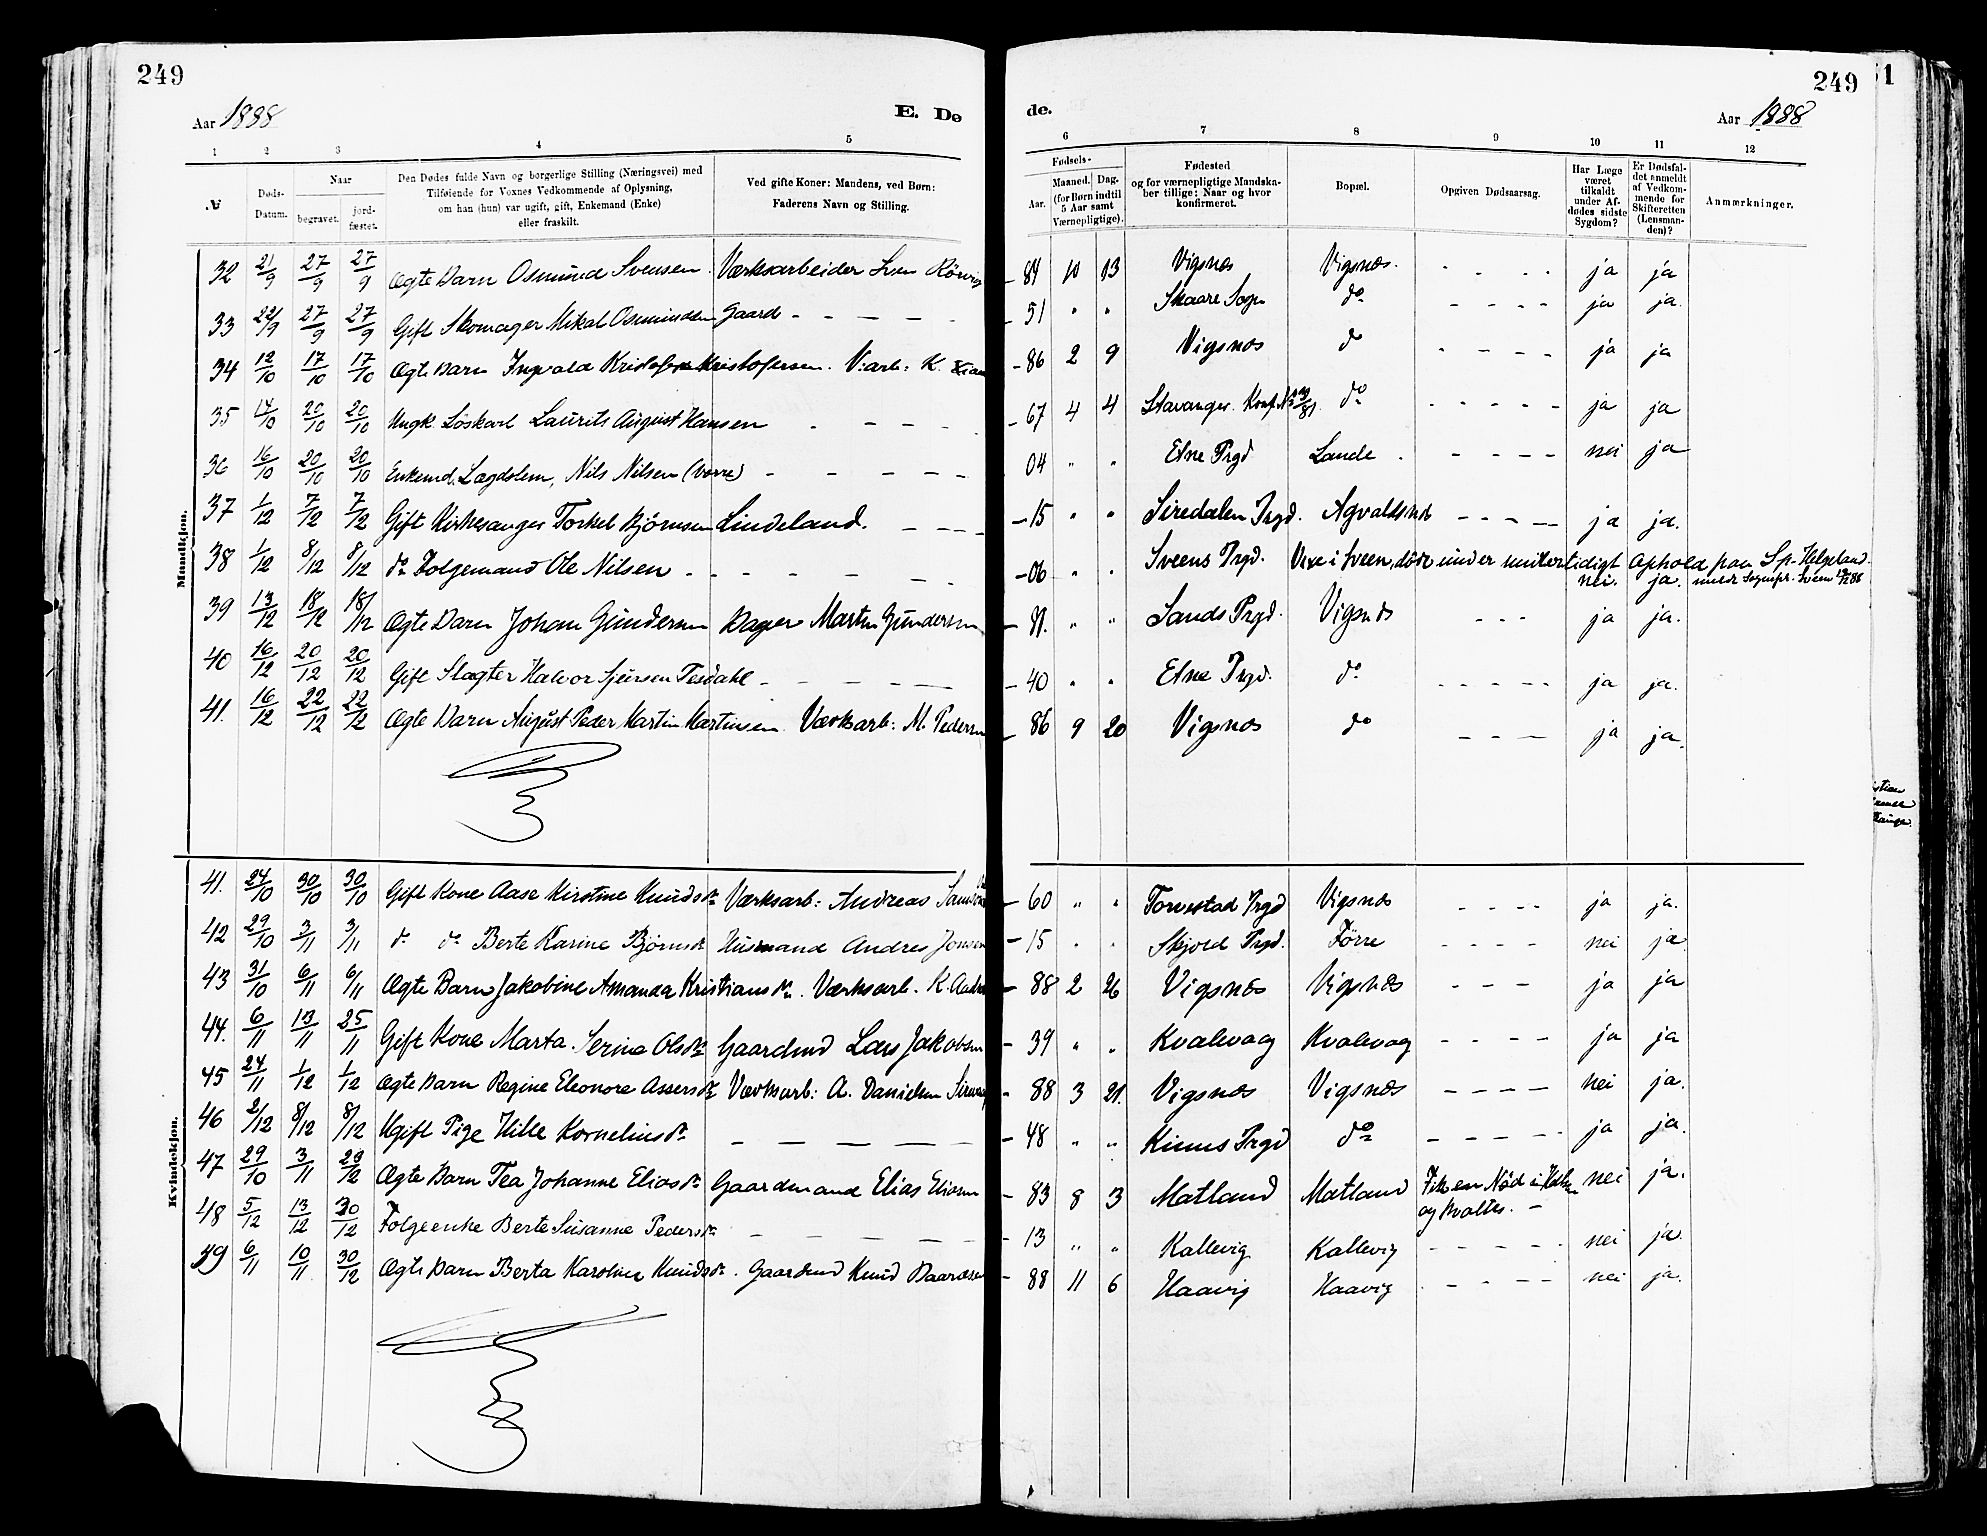 249
249
1
Aar 1888
E. Dø
de.
Aar 1888
1 2 3 4 5
6 7 8 9 10 11 12
№ Døds-Datum. Naar begravet. jord-fæstet. Den Dødes fulde Navn og borgerlige Stilling (Næringsvei) med Tilføiende for Voxnes Vedkommende af Oplysning, om han (hun) var ugift, gift, Enkemand (Enke) eller fraskilt. Ved gifte Koner: Mandens, ved Børn: Faderens Navn og Stilling.
Fødsels- Aar. Maaned. Dag. (for Børn indtil 5 Aar samt Værnepligtige). Fødested og for værnepligtige Mandskaber tillige: Naar og hvor konfirmeret. Bopæl. Opgiven Dødsaarsag. Har Læge været tilkaldt under Afdødes sidste Sygdom? Er Dødsfaldet anmeldt af Vedkommende for Skifteretten (Lensmanden)? Anmærkninger.
Mandkjøn.
32 21/9 27/9 27/9 Ægte Barn Osmund Svensen Værksarbeider Sven Rörvig - 84 10 13 Vigsnæs Vigsnæs - - - - ja ja
33 22/9 27/9 27/9 Gift Skomager Mikal Osmundsen Gaard - - - - - - 51 " " Skaare Sogn do - - - - ja ja.
34 12/10 17/10 17/10 Ægte Barn Ingvald Kristofersen Kristofersen. V.arb: K. - 86 2 9 Vigsnæs do - - - - ja ja
35 14/10 20/10 20/10 Ungk. Löskarl Laurits August Hansen - - - - - 67 4 4 Stavanger. Konf. do - - - - - ja ja
36 16/10 20/10 20/10 Enkemd. Lægdslem, Nils Nilsen (Vorre) - - - - - - 04 " " Etne Prgd Lande - - - - nei ja
37 1/12 7/12 7/12 Gift Kirkesanger Torkel Bjørnsen Lindeland. - - - - 15 " " Siredalen Prgd. Agvaldsnes - - - - ja ja.
38 1/12 8/12 8/12 do Folgemand Ole Nilsen - - - - - - - 06 " " Sveens Prgd. Vixe i Sveen, döde under midlertidigt Ophold paa Sp. Helgeland.
nei. ja.
39 13/12 18/12 18/12 Ægte Barn Johan Gundersen Bager Martin Gundersen - 81. " " Sands Prgd. Vigsnæs - - - ja ja.
40 16/12 20/12 20/12 Gift Slagter Halvor Sjursen Tesdahl - - - - - 40 " " Etne Prgd. do - - - - - ja ja.
41. 16/12 22/12 22/12 Ægte Barn August Peder Martin Martinsen. Værksarb: M. Pedersen - 86 9 20 Vigsnæs do - - - ja ja.
Kvindekjøn.
41. 24/10 30/10 30/10 Gift Kone Aase Kirstine Knudsdr Værksarb: Andreas - 60 " " Torvestad Prgd Vigsnæs - - - - ja ja.
42 29/10 3/11 3/11 do do Berte Karine Bjørnsdr Husmand Andres Jonsen - 15 " " Skjold Prgd. Förre - - - - nei ja
43 31/10 6/11 6/11 Ægte Barn Jakobine Amanda Kristiansdr. Værksarb. K. - 88 2 26 Vigsnæs Vigsnæs - - - ja ja
44. 6/11 13/11 25/11 Gift Kone Marta Serine Olsdr Gaardmd Lars Jakobsen - 39 " " Kvalevaag Kvalevaag - - - - ja ja
45 24/11 1/12 1/12 Ægte Barn Regine Eleonore Assersdr Værksarb: A. Danielsen - 88 3 21. Vigsnæs Vigsnæs - - - - nei ja.
46 2/12 8/12 8/12 Ugift Pige Hille Korneliusdr - - - - - - 48 " " Kinns Prgd do - - - - - ja ja.
47 29/10 3/11 29/12 Ægte Barn Tea Johanne Eliasdr Gaardmand Elias Eliasen - 83 8 3 Matland Matland Fik en Nöd i Halsen og kvaltes. - nei ja.
48 5/12 13/12 30/12 Folgeenke Berte Susanne Pedersdr - - - - - - 13 " " Kallevig Kallevig - - - - - nei ja.
49 6/11 10/11 30/12 Ægte Barn Berta Karoline Knudsdr. Gaardmd Knud Baardsen - 88 11 6 Haavig Haavig - - - - nei ja.